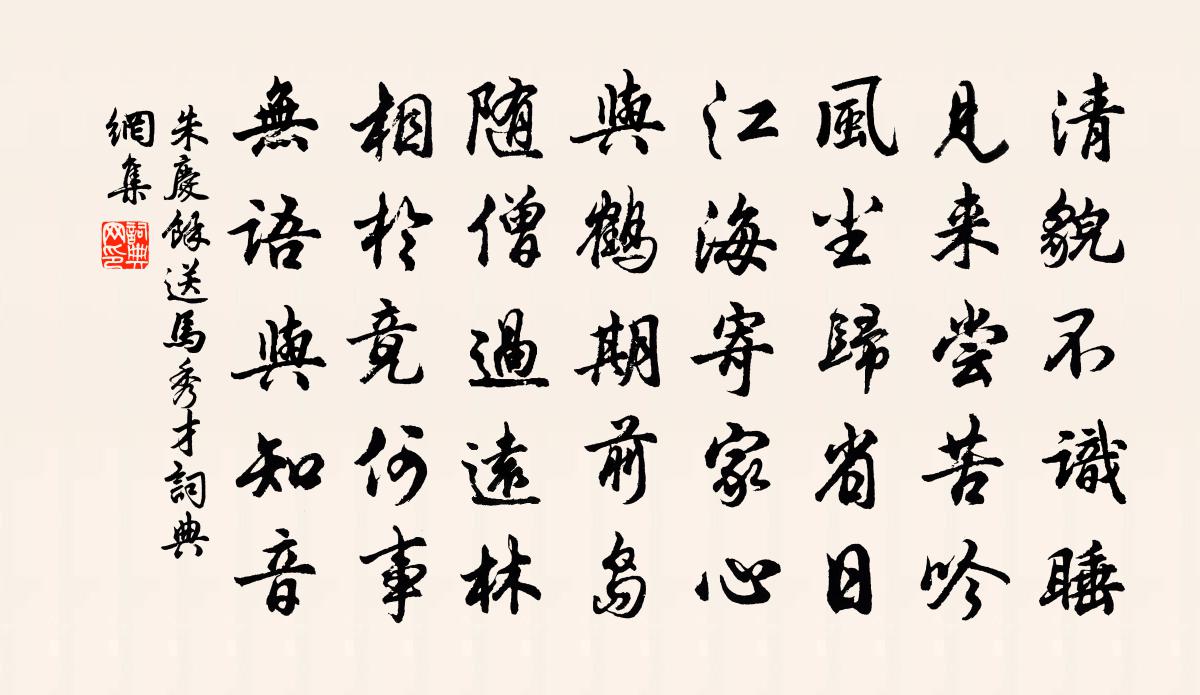 清貌不識睡
見来嘗苦吟
風尘歸省日
江海寄家心
與鶴期前島
随僧過遠林
相於竟何事
無語與知音
朱慶餘送馬秀才詞典
網集
詞典
网印